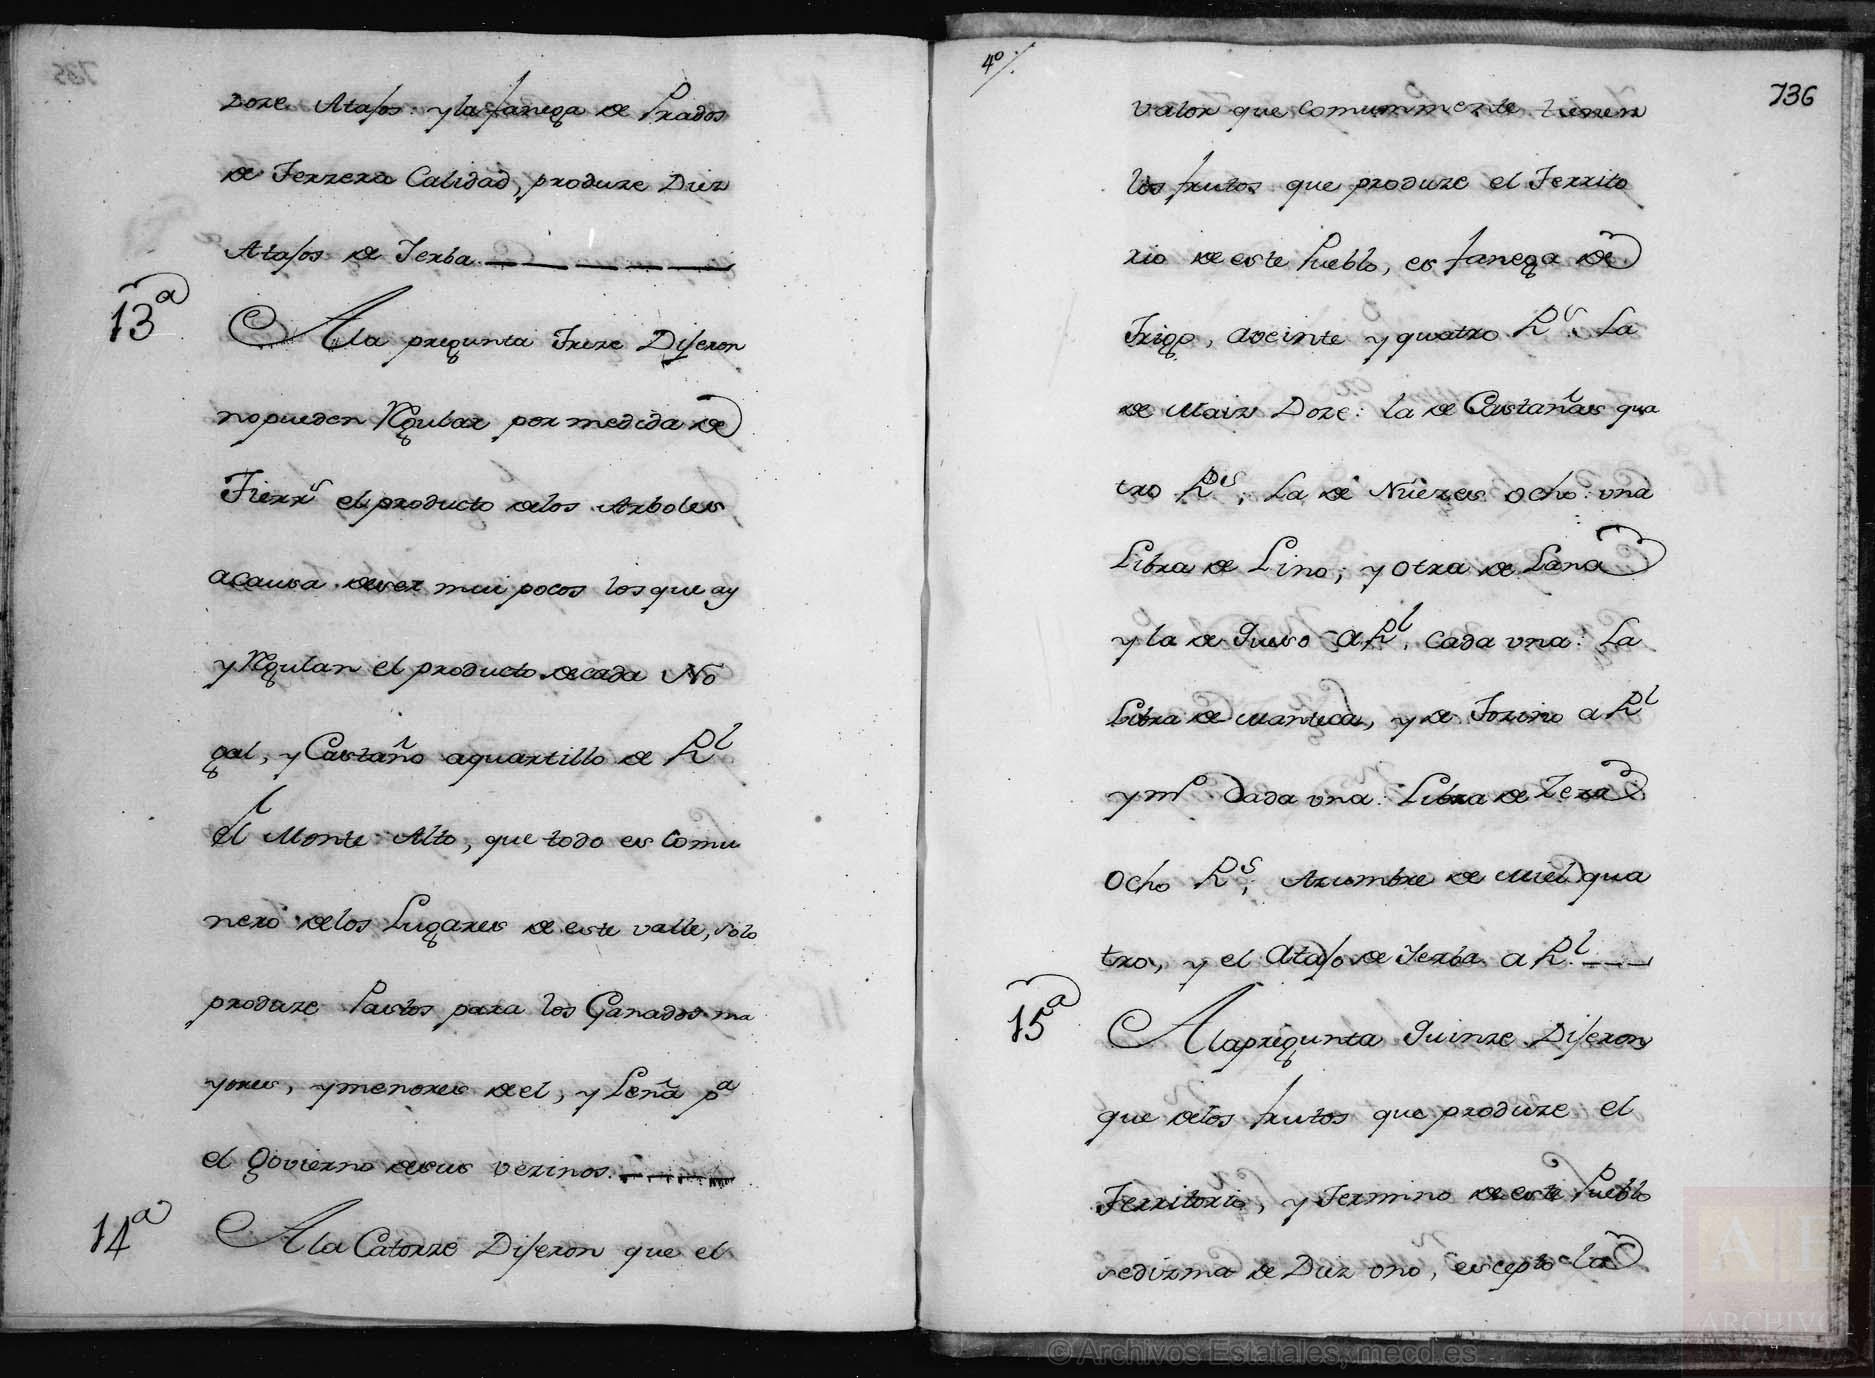 Doze Atajos: y la fanega de Prados
de Terzera Calidad, produze Diez
Atajos de Yerba.
13ª
A la pregunta Treze Dijeron
no pueden Regular por medida de
Tierrˢ el producto delos Arboles
acausa deser mui pocos los que ay
y Regulan el producto decada No
gal, y Castaño aquartillo de Rˡ
el Monte Alto, que todo es Comu
nero delos Lugares de este valle, solo
produze Pastos para los Ganados ma
yores, y menores de el, y Leña pª
el Govierno desus vezinos.
14ª
A la Catorze Dijeron que el
4º/.
736
valor que comunmente tienen
los frutos que produze el Territo
rio de este Pueblo, es fanega de
Trigo, aveinte y quatro Rˢ. La
de Maiz Doze: la de Castañas qua
tro Rˢ; La de Nuezes ocho: una
Libra de Lino; y otra de Lana
y la de Queso a Rˡ. cada una: La
Libra de Manteca, y de Tozino a Rˡ
y mº Cada una: Libra de Zera
Ocho Rˢ; Azumbre de Miel qua
tro, y el Atajo de Yerba a Rˡ.
15ª
A lapregunta Quinze Dijeron
que delos frutos que produze el
Territorio, y Termino de este Pueblo
sediezma de Diez uno, escepto la
© Archivos Estatales, mecd.es